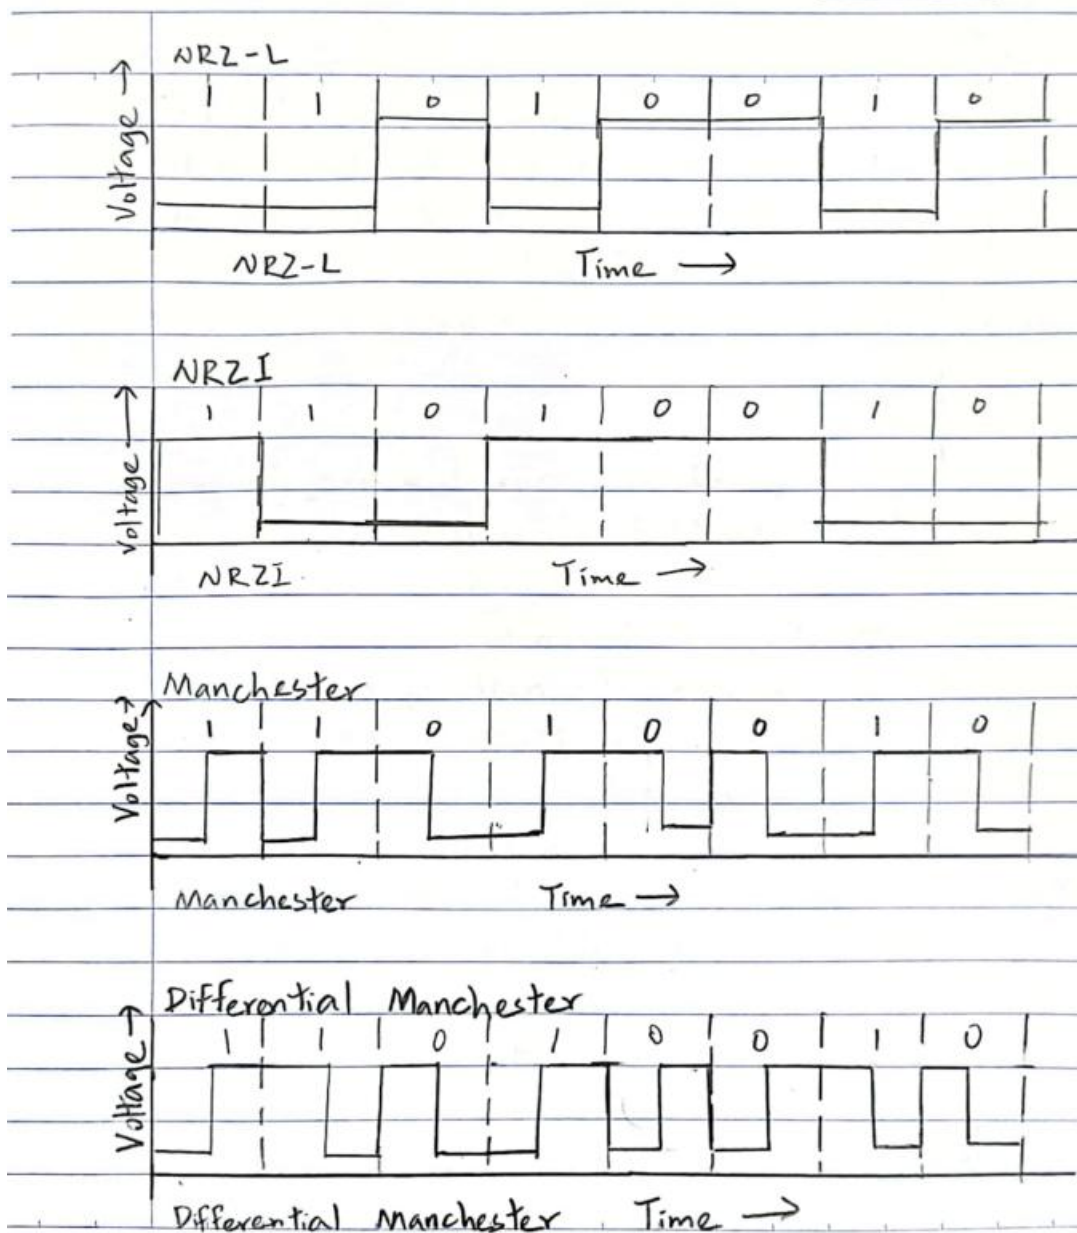 NRZ-L
Voltage →
1 1 0 1 0 0 1 0
NRZ-L Time →
NRZI
Voltage →
1 1 0 1 0 0 1 0
NRZI Time →
Manchester
Voltage →
1 1 0 1 0 0 1 0
Manchester Time →
Differential Manchester
Voltage →
1 1 0 1 0 0 1 0
Differential Manchester Time →